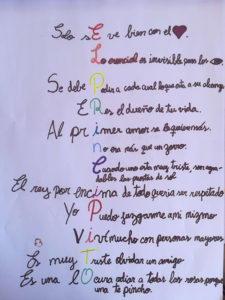 Solo sE ve bien con el
Lo esencial es invisible para los
Se debe Pedir a cada cual lo que está a su alcance
ERes el dueño de tu vida.
Al prImer amor se le quiere más.
no era más que un zorro.
Cuando uno esta muy triste, son agra-
dables las puestas de sol
El rey por encIma de todo quería ser respetado
Yo Puedo juzgarme a mi mismo
VIví mucho con personas mayores
Es muy Triste olvidar un amigo
Es una lOcura odiar a todas las rosas porque
una te pinchó.